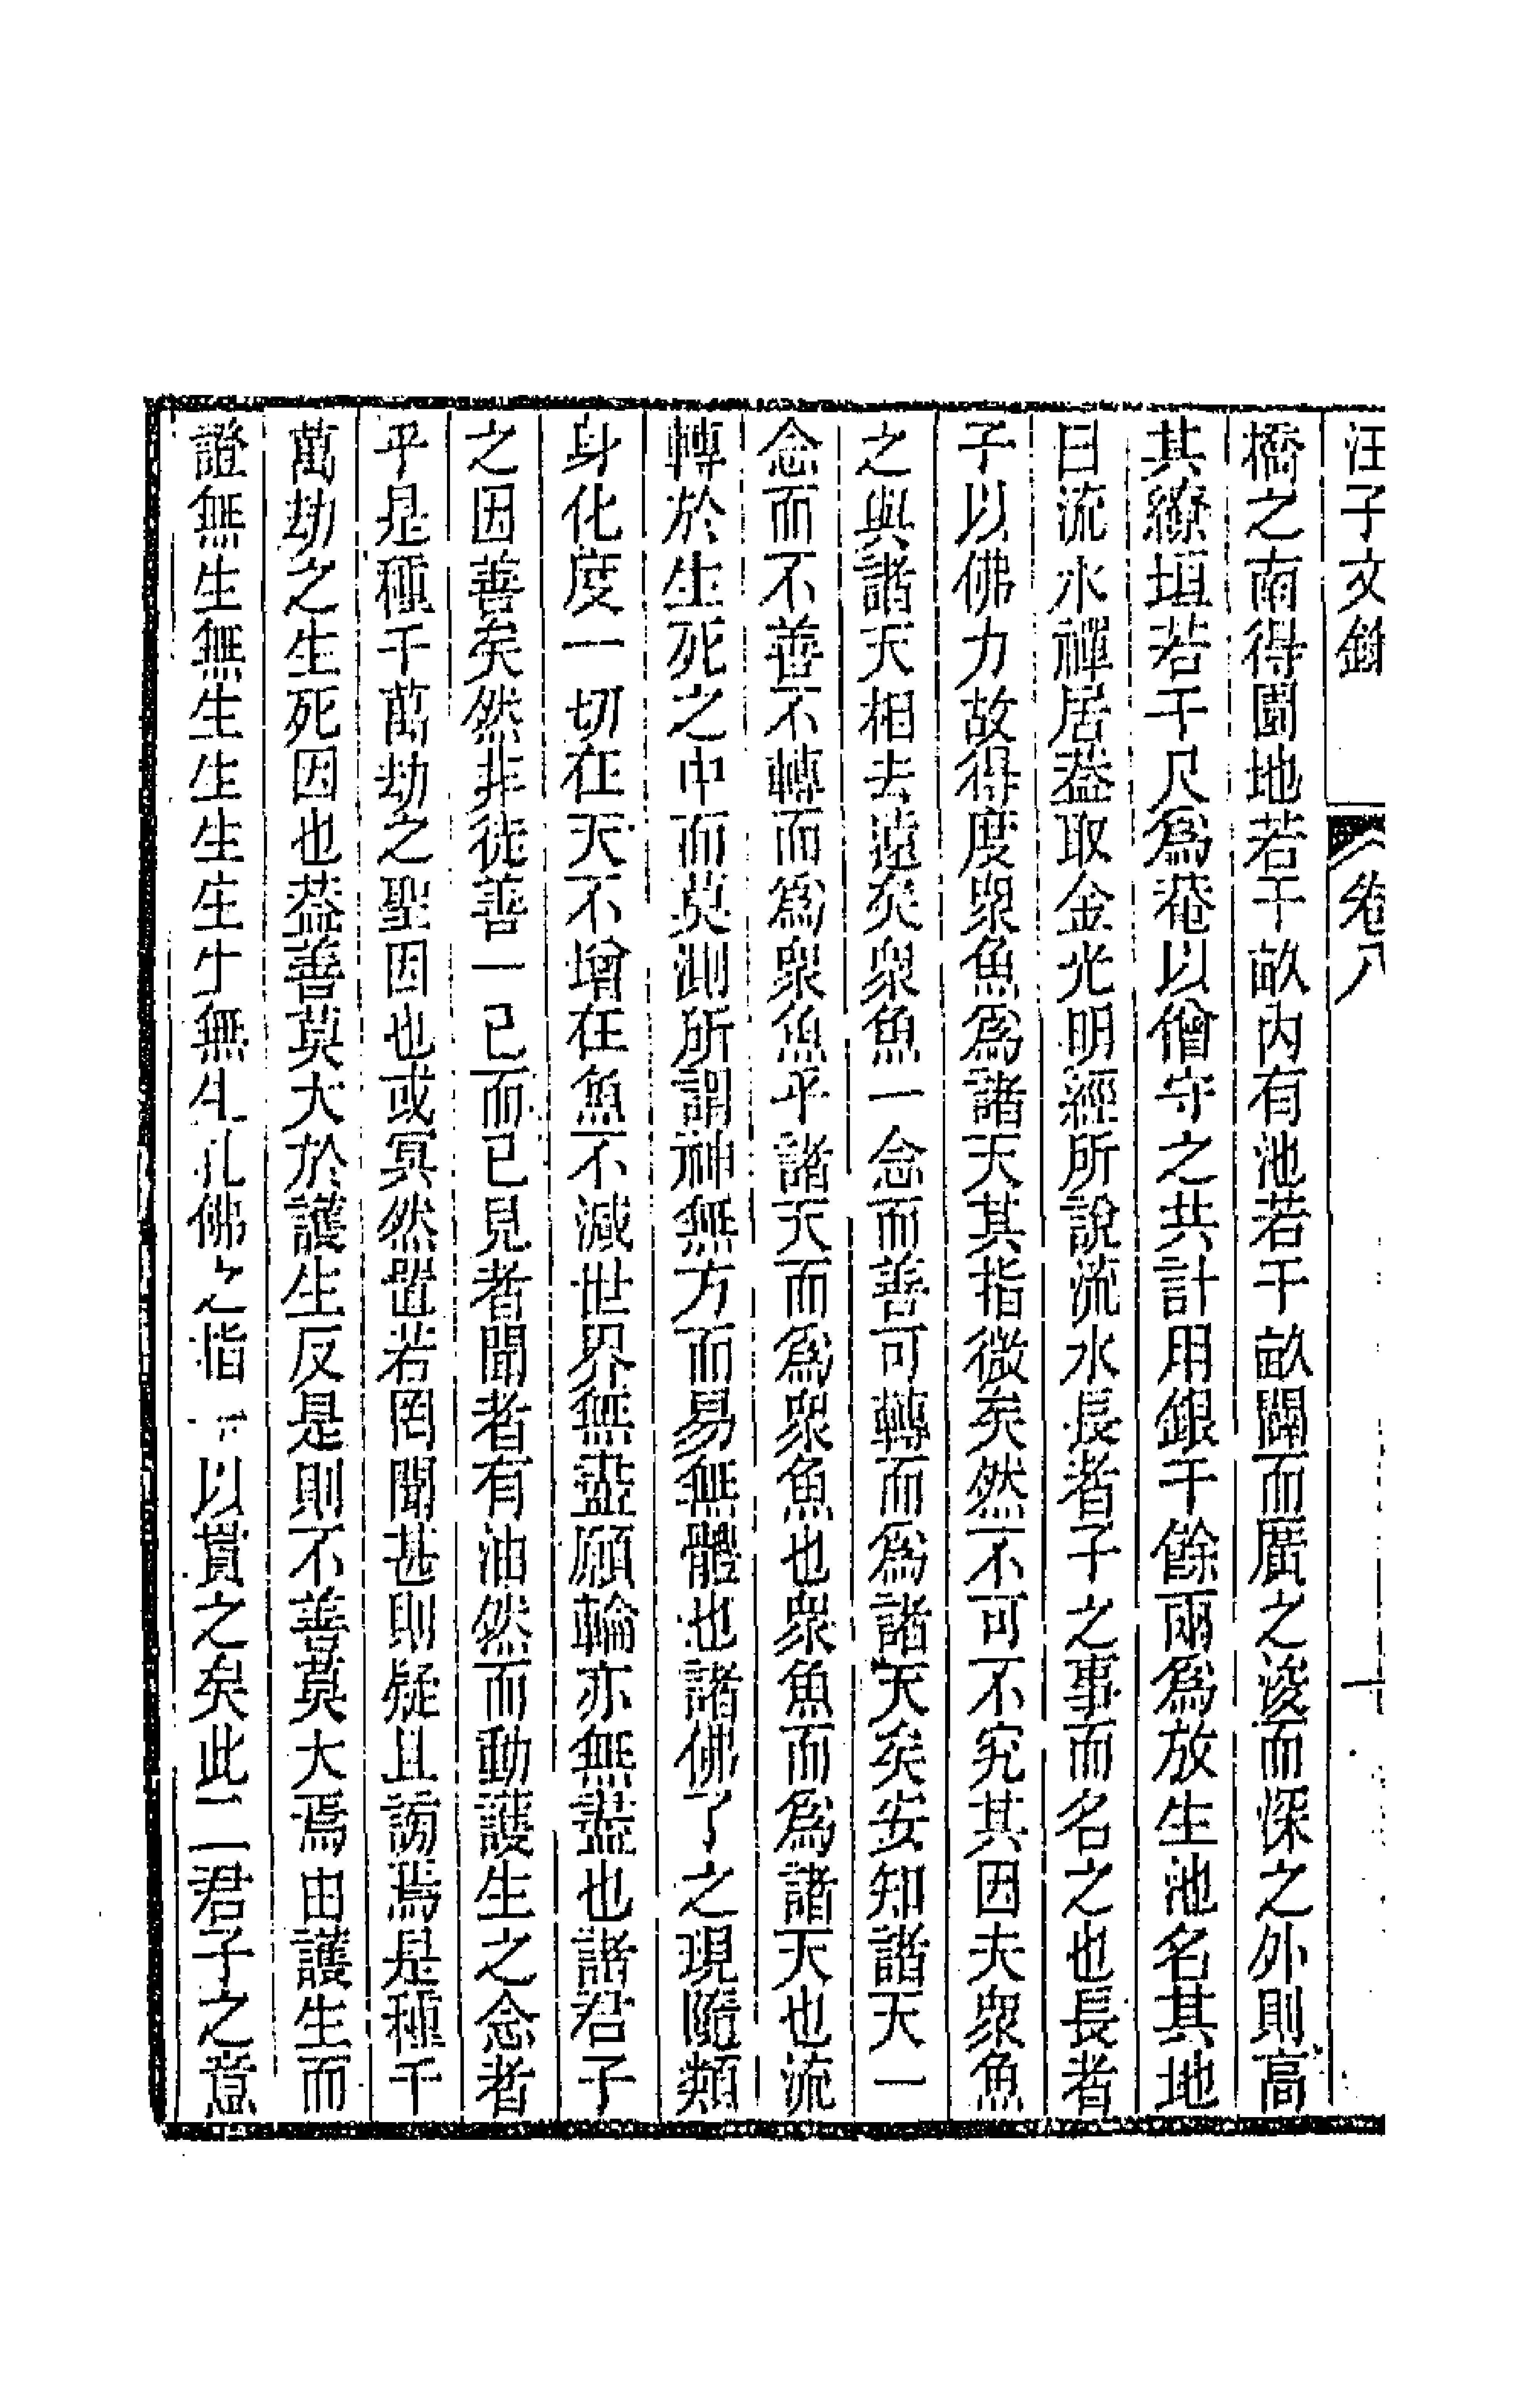 汪子文錄 卷八 十
橋之南得園地若干畝內有池若干畝闢而廣之浚而深之外則高
其繚垣若干尺爲菴以僧守之共計用銀千餘兩爲放生池名其地
曰流水禪居葢取金光明經所說流水長者子之事而名之也長者
子以佛力故得度衆魚爲諸天其指微矣然不可不究其因夫衆魚
之與諸天相去遠矣衆魚一念而善可轉而爲諸天矣安知諸天一
念而不善不轉而爲衆魚乎諸天而爲衆魚也衆魚而爲諸天也流
轉於生死之中而莫測所謂神無方而易無體也諸佛了之現隨類
身化度一切在天不增在魚不減世界無盡願輪亦無盡也諸君子
之因善矣然非徒善一已而已見者聞者有油然而動護生之念者
乎是種千萬劫之聖因也或冥然置若罔聞甚則疑且謗焉是種千
萬劫之生死因也葢善莫大於護生反是則不善莫大焉由護生而
證無生無生生生生生無生孔佛之指一以貫之矣此二君子之意